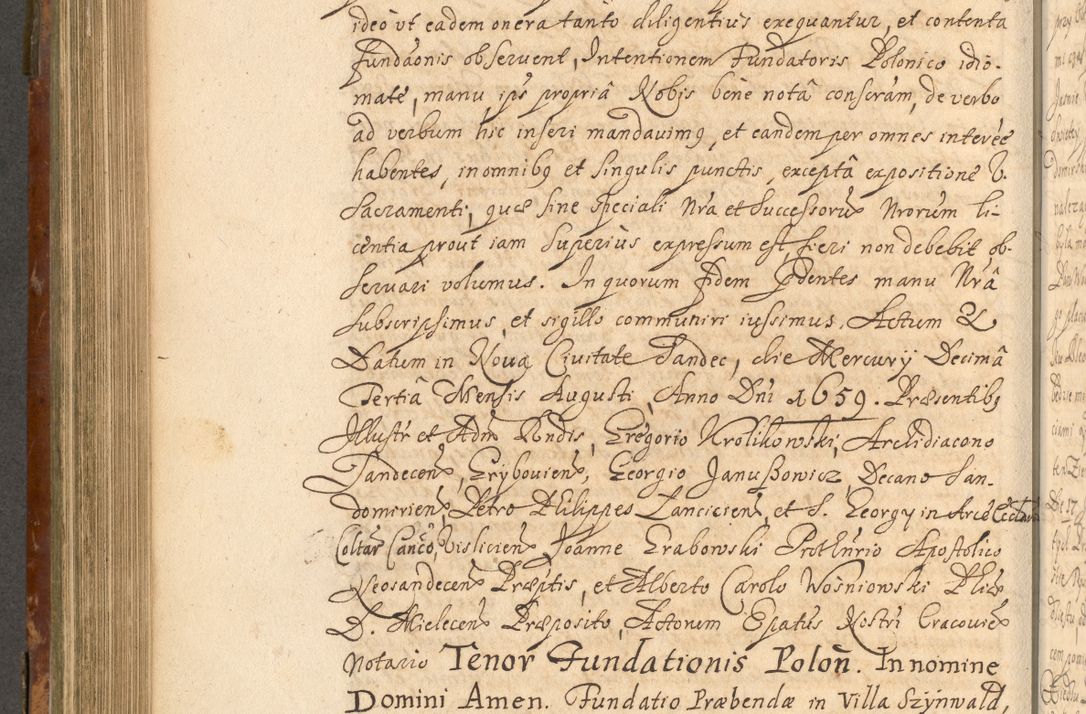 ideò ut eadem onera tanto diligentius exequantur, et contenta
Fundaonis observent, Intentionem Fundatoris Polonico idio-
mate, manu ips propriâ Nobis bene notâ conscram, de verbo
ad verbum hic inseri mandavimq, et eandem per omnes interẽe
habentes, in omnibq et singulis punctis, exceptâ expositione V.
Sacramenti, quæ sine speciali Nra et Successorum Nrorum li-
centia prout iam superius expressum est fieri non debebit, ob-
servari volumus. In quorum fidem pñdentes manu Nrâ
subscripsimus, et sigillo communiri iussimus. Actum &
Datum in Nova Civitate Sandec, die Mercurÿ Decimâ
Tertiâ Mensis Augusti, Anno Dni 1659. Præsentibq
Illustr et Adm Rndis, Gregorio Krolikowski, Archidiacono
Sandecen, Grÿbovien, Georgio Janußowicz, Decano San-
domirien, Petro Philippes Lancicien, et S. Georgy in Arce
Coltar Canco, Vislicien, Joanne Grabowski Prothnrio Apostolico
Neosandecen Præptis, et Alberto Carolo Wosniowski Phiæ
D. Mielecen Præposito, Actorum Epatus Nostri Cracovien
Notario Tenor Fundationis Polon. In nomine
Domini Amen. Fundatio Præbendæ in Villa Szÿnwald,